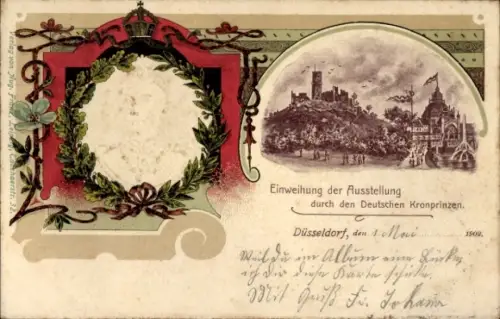 Einweihung der Ausstellung
durch den Deutschen Kronprinzen.
Düsseldorf, den 1 Mai 1902.
Weil du im Album eine Lücke,
ich dir diese Karte schicke.
Mit Gruß Fr. Johann
Verlag von